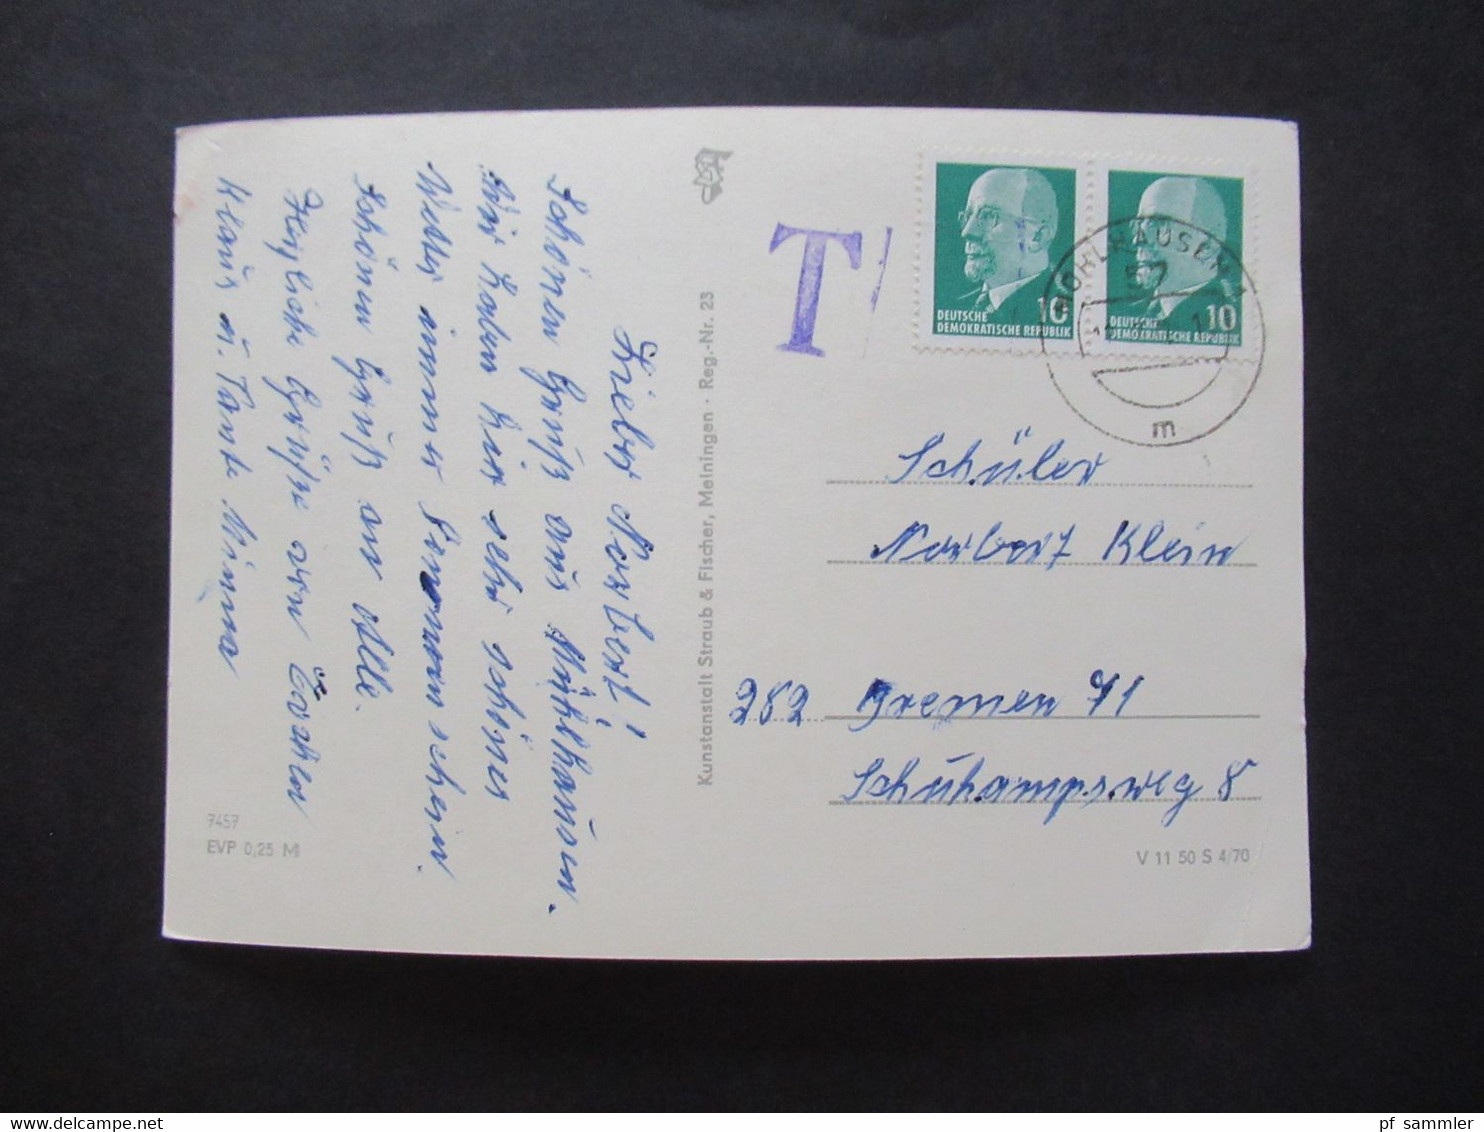 Lieber Norbert!
Schönen Gruß aus Mühlhausen.
Wir haben hier sehr schönes
Wetter immer Sonnenschein.
Schönen Gruß an Alle.
Herzliche Grüße von
Klaus u. Tante Minna
7457
EVP 0,25 M
Kunstanstalt Straub & Fischer, Meiningen · Reg.-Nr. 23
T
DEUTSCHE
DEMOKRATISCHE REPUBLIK
10
DEUTSCHE
DEMOKRATISCHE REPUBLIK
10
MÜHLHAUSEN 1
57
m
Schüler
Norbert Klein
282 Bremen 71
Schukampsweg 8
V 11 50 S 4/70
pf_sammler